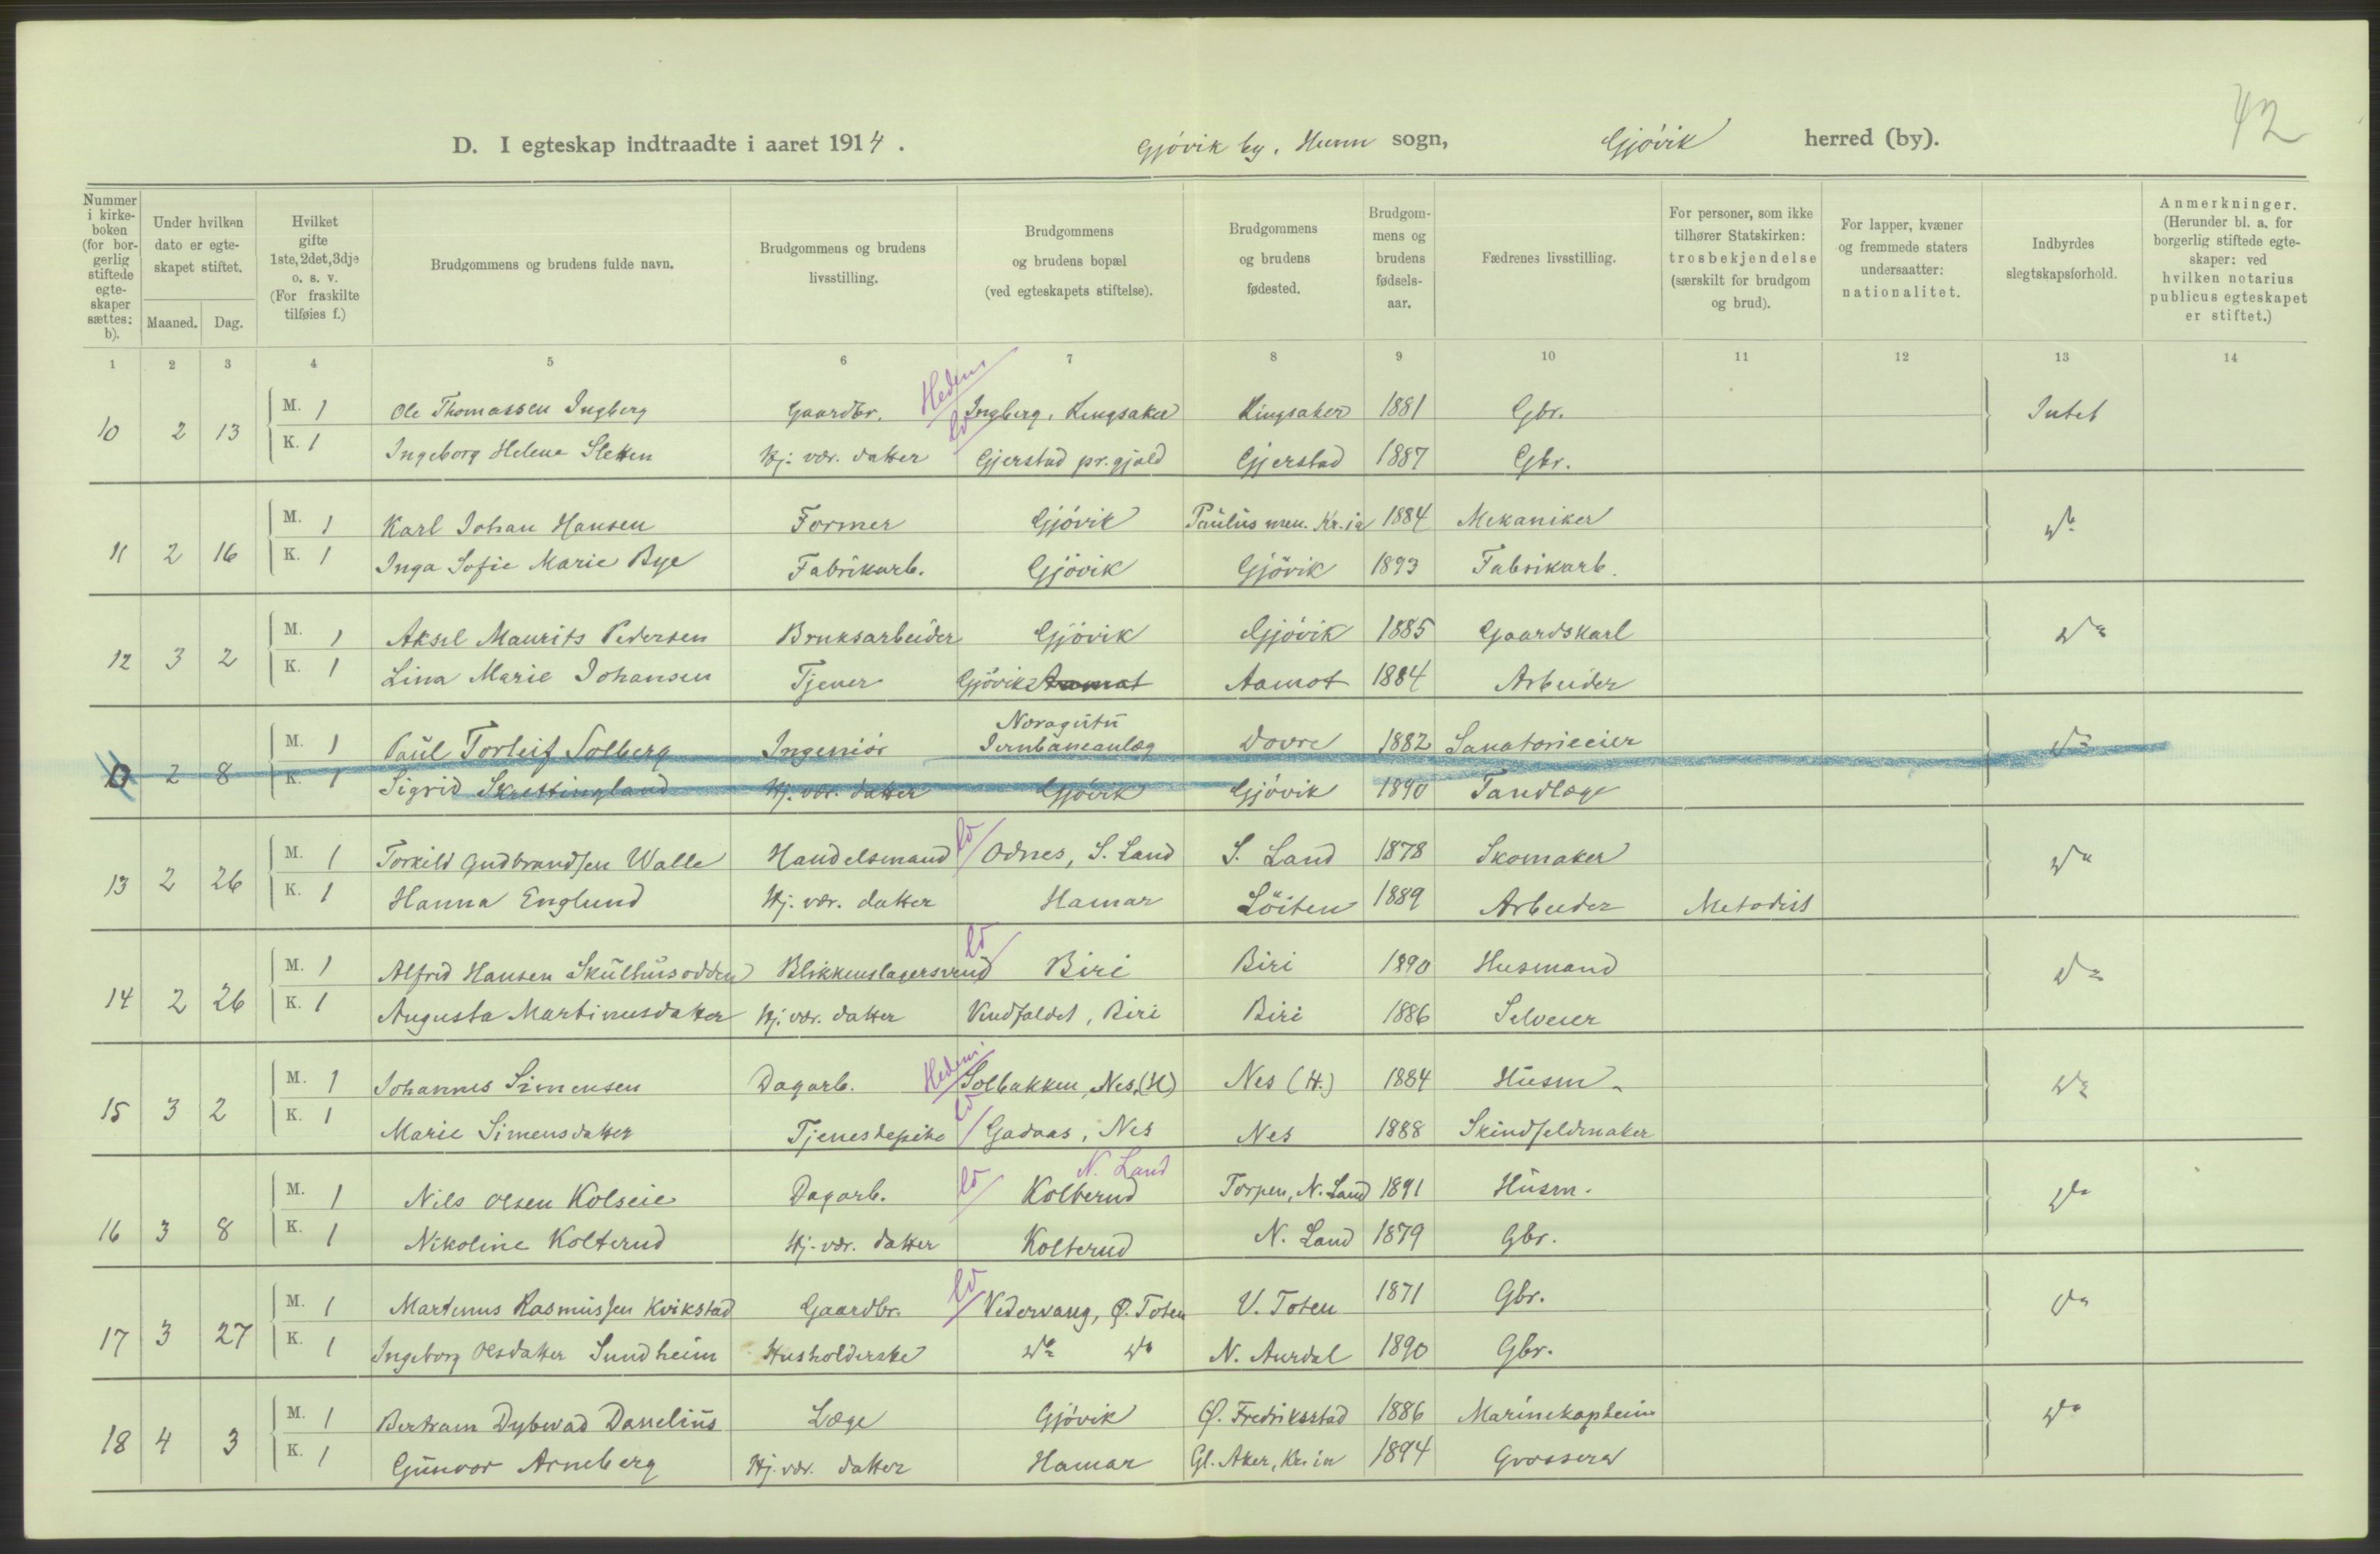 42
D. I egteskap indtraadte i aaret 1914. Gjövik by, Hunn sogn, Gjövik herred (by).
Nummer i kirkeboken (for borgerlig stiftede egteskaper sættes: b).
Under hvilken dato er egteskapet stiftet.
Maaned. Dag.
Hvilket gifte 1ste, 2det, 3dje o. s. v. (For fraskilte tilføies f.)
Brudgommens og brudens fulde navn.
Brudgommens og brudens livsstilling.
Brudgommens og brudens bopæl (ved egteskapets stiftelse).
Brudgommens og brudens fødested.
Brudgommens og brudens fødselsaar.
Fædrenes livsstilling.
For personer, som ikke tilhører Statskirken: trosbekjendelse (særskilt for brudgom og brud).
For lapper, kvæner og fremmede staters undersaatter: nationalitet.
Indbyrdes slegtskapsforhold.
Anmerkninger. (Herunder bl. a. for borgerlig stiftede egteskaper: ved hvilken notarius publicus egteskapet er stiftet.)
1 2 3 4 5 6 7 8 9 10 11 12 13 14
Hedem.
M. 1 Ole Thomassen Ingberg Gaardbr. Ingberg, Ringsaker Ringsaker 1881 Gbr. Intet
10 2 13
K. 1 Ingeborg Helene Sletten Hj. vær. datter Gjerstad pr.gjeld Gjerstad 1887 Gbr.
M. 1 Karl Johan Hansen Former Gjövik Paulus men. Kr.ia 1884 Mekaniker do
11 2 16
K. 1 Inga Sofie Marie Bye Fabrikarb. Gjövik Gjövik 1893 Fabrikarb.
M. 1 Aksel Maurits Pedersen Bruksarbeider Gjövik Gjövik 1885 Gaardskarl do
12 3 2
K. 1 Lina Marie Johansen Tjener Gjövik Aamot Aamot 1884 Arbeider
Noragutu
M. 1 Paul Torleif Solberg Ingeniör Jernbaneanlæg Dovre 1882 Sanatorieeier do
2 8
K. 1 Sigrid Skrettingland Hj. vær. datter Gjövik Gjövik 1890 Tandlæge
M. 1 Torkild Gudbrandsen Walle Handelsmand Odnes, S. Land S. Land 1878 Skomaker do
13 2 26
K. 1 Hanna Englund Hj. vær. datter Hamar Löiten 1889 Arbeider Metodist
M. 1 Alfred Hansen Skulhusodden Blikkenslagersvend Biri Biri 1890 Husmand do
14 2 26
K. 1 Augusta Martinusdatter Hj. vær. datter Vindfaldet, Biri Biri 1886 Selveier
Hedem.
M. 1 Johannes Simensen Dagarb. Solbakken, Nes (H) Nes (H.) 1884 Husm. do
15 3 2
K. 1 Marie Simensdatter Tjenestepike Gadaas, Nes Nes 1888 Skindfeldmaker
N. Land
M. 1 Nils Olsen Kolseie Dagarb. Kolterud Torpen, N. Land 1891 Husm. do
16 3 8
K. 1 Nikoline Kolterud Hj. vær. datter Kolterud N. Land 1879 Gbr.
M. 1 Martinus Rasmussen Kvikstad Gaardbr. Vedervang, Ø. Toten V. Toten 1871 Gbr. do
17 3 27
K. 1 Ingeborg Olsdatter Sundheim Husholderske do do N. Aurdal 1890 Gbr.
M. 1 Bertram Dybwad Danelius Læge Gjövik Ø. Fredriksstad 1886 Marinekaptein do
18 4 3
K. 1 Gunvor Arneberg Hj. vær. datter Hamar Gl. Aker, Kr.ia 1894 Grosserer